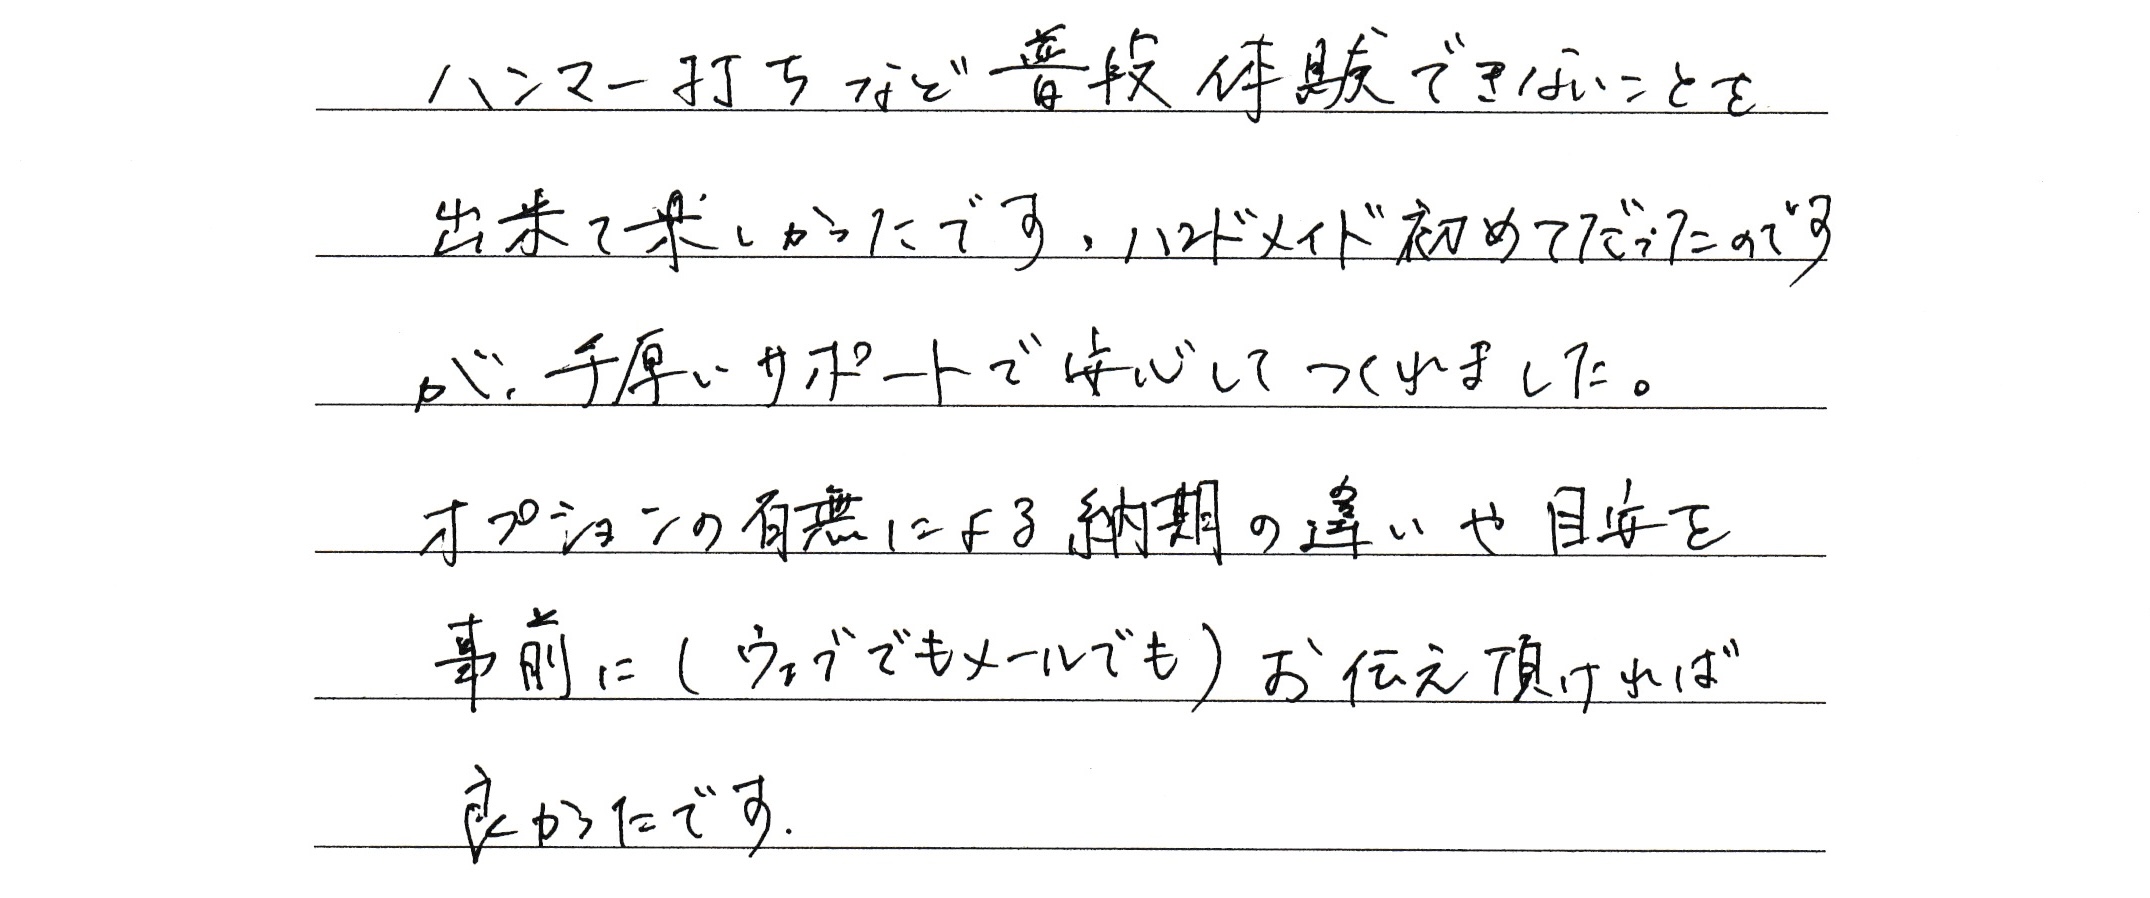 ハンマー打ちなど普段体験できないことを
出来て楽しかったです。ハンドメイド初めてだったのです
が、手厚いサポートで安心してつくれました。
オプションの有無による納期の違いや目安を
事前に(ウェブでもメールでも)お伝え頂ければ
良かったです.